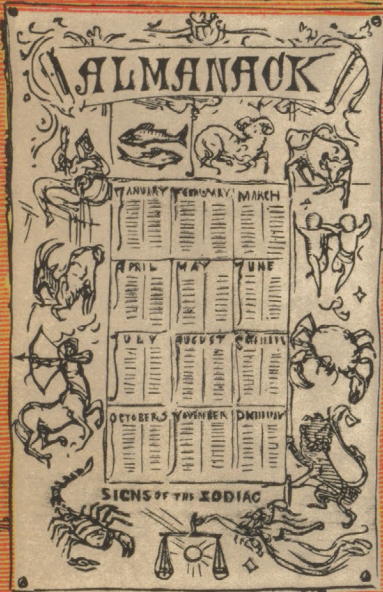 ALMANACK
JANUARY FEBRUARY MARCH
APRIL MAY JUNE
JULY AUGUST
OCTOBER NOVEMBER
SIGNS OF THE ZODIAC